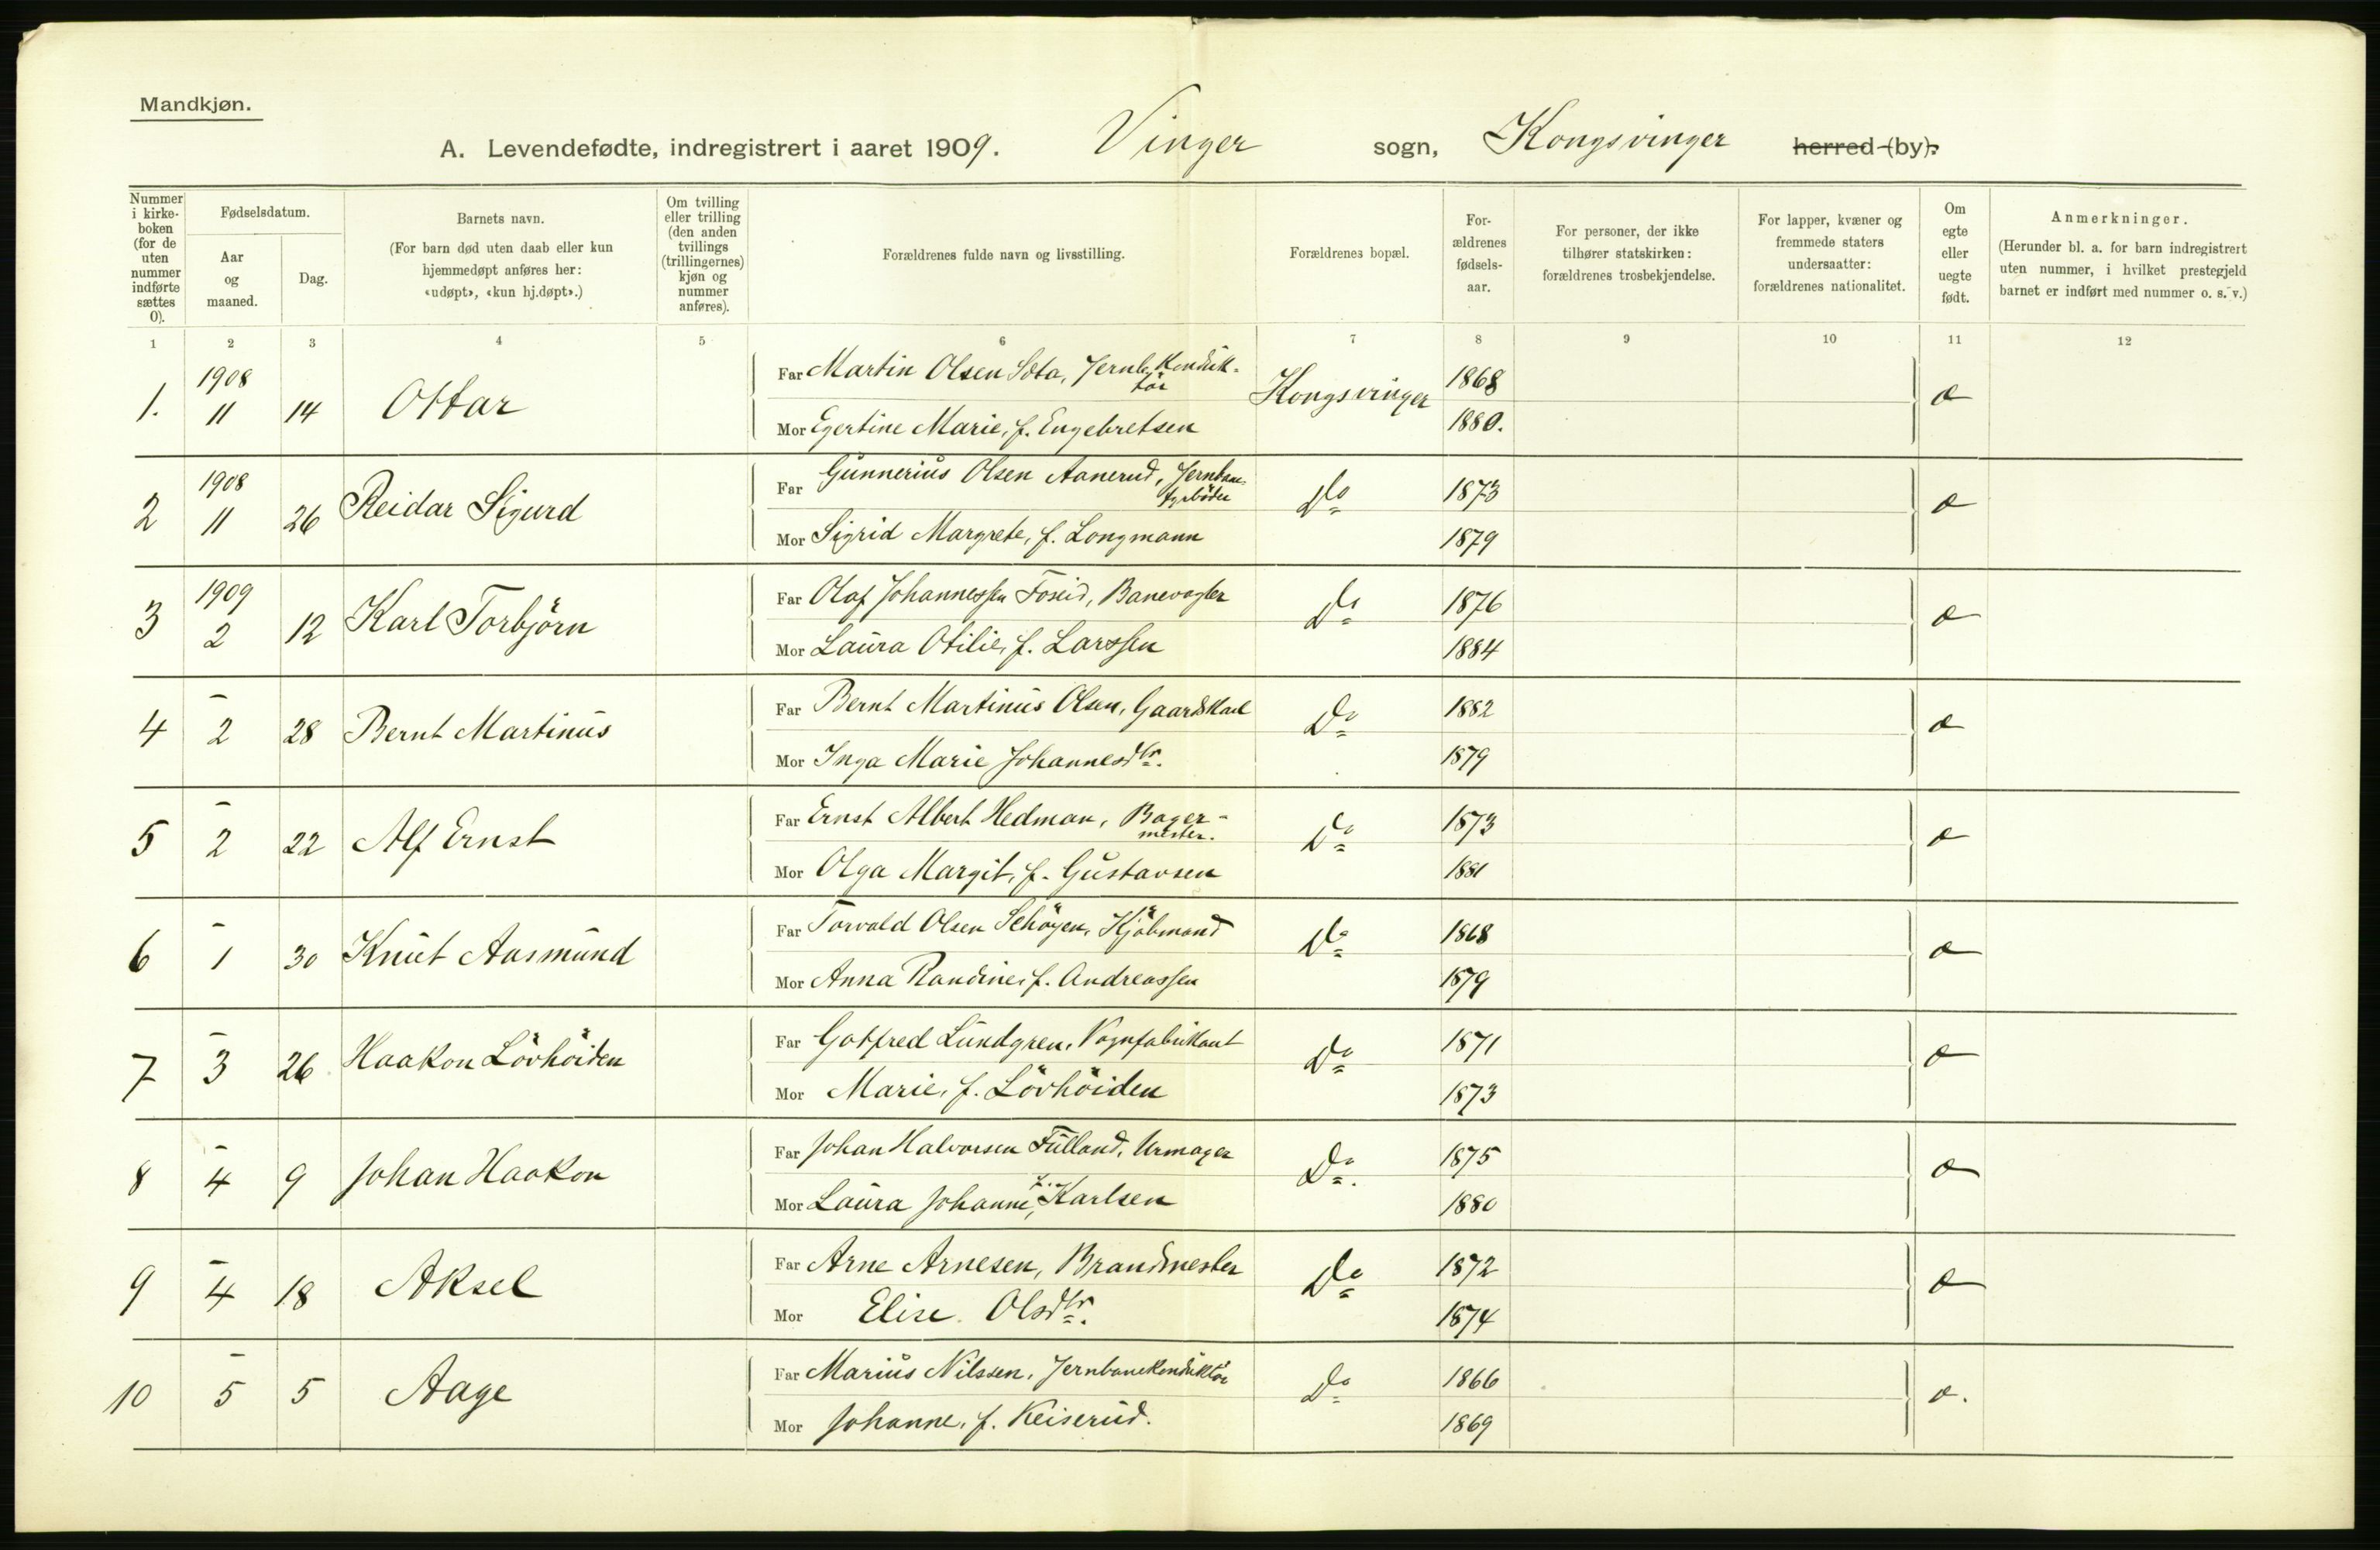 Mandkjøn.
A. Levendefødte, indregistrert i aaret 1909. Vinger sogn, Kongsvinger herred (by).
Nummer i kirke-boken (for de uten nummer indførte sættes 0).
Fødselsdatum.
Aar og maaned.
Dag.
Barnets navn.
(For barn død uten daab eller kun hjemmedøpt anføres her: «udøpt», «kun hj.døpt».)
Om tvilling eller trilling (den anden tvillings (trillingernes) kjøn og nummer anføres).
Forældrenes fulde navn og livsstilling.
Forældrenes bopæl.
For-ældrenes fødsels-aar.
For personer, der ikke tilhører statskirken: forældrenes trosbekjendelse.
For lapper, kvæner og fremmede staters undersaatter: forældrenes nationalitet.
Om egte eller uegte født.
Anmerkninger.
(Herunder bl. a. for barn indregistrert uten nummer, i hvilket prestegjeld barnet er indført med nummer o. s. v.)
1 2 3 4 5 6 7 8 9 10 11 12
1. 1908 11 14 Ottar Far Martin Olsen Sota, Jernb. Konduk-tör Kongsvinger 1868 æ
Mor Egertine Marie, f. Engebretsen 1880.
2 1908 11 26 Reidar Sigurd Far Gunnerius Olsen Aanerud, Jernban. fyrböder Do 1873 æ
Mor Sigrid Margrete, f. Longmann 1879
3 1909 2 12 Karl Torbjörn Far Olaf Johannessen Foseid, Banevogter Do 1876 æ
Mor Laura Otilie, f. Larssen 1884
4 – 2 28 Bernt Martinus Far Bernt Martinus Olsen, Gaardskarl Do 1882 æ
Mor Inga Marie Johannesdtr. 1879
5 – 2 22 Alf Ernst Far Ernst Albert Hedman, Bager-mester. Do 1873 æ
Mor Olga Margit, f. Gustavsen 1881
6 – 1 30 Knut Aasmund Far Torvald Olsen Schöyen, Kjöbmand Do 1868 æ
Mor Anna Randine, f. Andreassen 1879
7 – 3 26 Haakon Lövhöiden Far Gotfred Lundgren, Vognfabrikant Do 1871 æ
Mor Marie, f. Lövhöiden 1873
8 – 4 9 Johan Haakon Far Johan Halvorsen Fulland, Urmager Do. 1875 æ
Mor Laura Johanne, f. Karlsen 1880
9 – 4 18 Aksel Far Arne Arnesen, Brandmester Do 1872 æ
Mor Elise Olsdtr. 1874
10 – 5 5 Aage Far Marius Nilssen, Jernbanekonduktör Do 1866 æ.
Mor Johanne, f. Keiserud. 1869